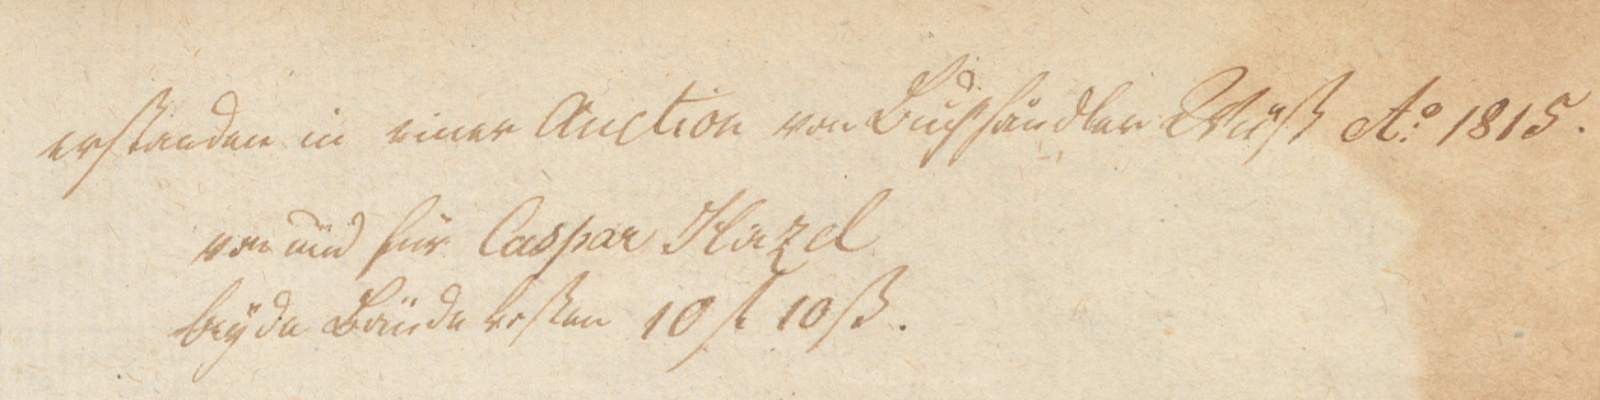 erstanden in einer Auction von Buchhändler Wüst Aº: 1815.
von und für Caspar Hazel
beÿde Bände kosten 10 f 10 ß.